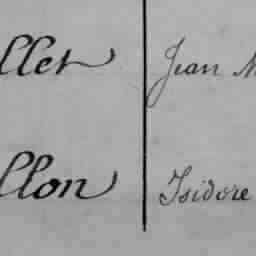 llet Jean M
llon Isidore